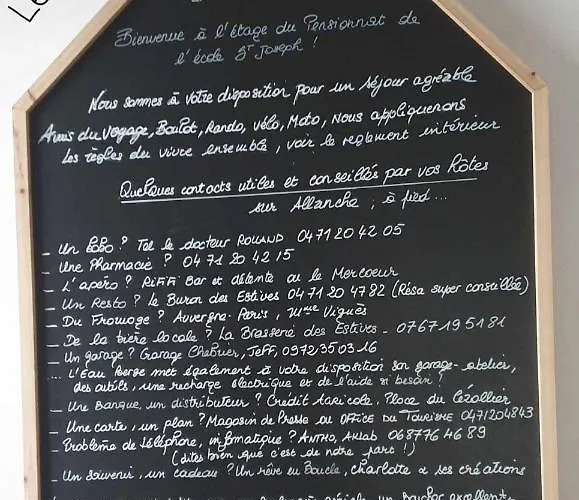 Le
Bienvenue à l'étage du Pensionnat de
l'école St Joseph !
Nous sommes à votre disposition pour un séjour agréable
Amis du voyage, Boulot, Rando, vélo, Moto, Nous appliquerons
les règles du vivre ensemble, voir le règlement intérieur
Quelques contacts utiles et conseillés par vos hôtes
sur Allanche, à pied...
- Un bobo ? Tel le docteur ROLLAND 04 71 20 42 05
- Une Pharmacie ? 04 71 20 42 15
- L'apéro ? RiFiFi Bar et détente ou le Mercoeur
- Un Resto ? le Buron des Estives 04 71 20 47 82 (Résa super conseillée)
- Du Fromage ? Auvergne-Paris, Mme Viguès
- De la bière locale ? La Brasserie des Estives - 0767195181
- Un garage ? Garage Chabrier, Jeff, 0972 35 03 16
... L'Eau Berge met également à votre disposition son garage-atelier,
des outils, une recharge électrique et de l'aide si besoin !
- Une Banque, un distributeur ? Crédit Agricole, Place du Cézallier
- Une carte, un plan ? Magasin de Presse ou OFFICE DU TOURISME 0471204843
- Problème de téléphone, informatique ? ANTHO, 068776 46 89
(dites bien que c'est de notre part !)
- Un souvenir, un cadeau ? Un rêve en Boucle, Charlotte & ses créations